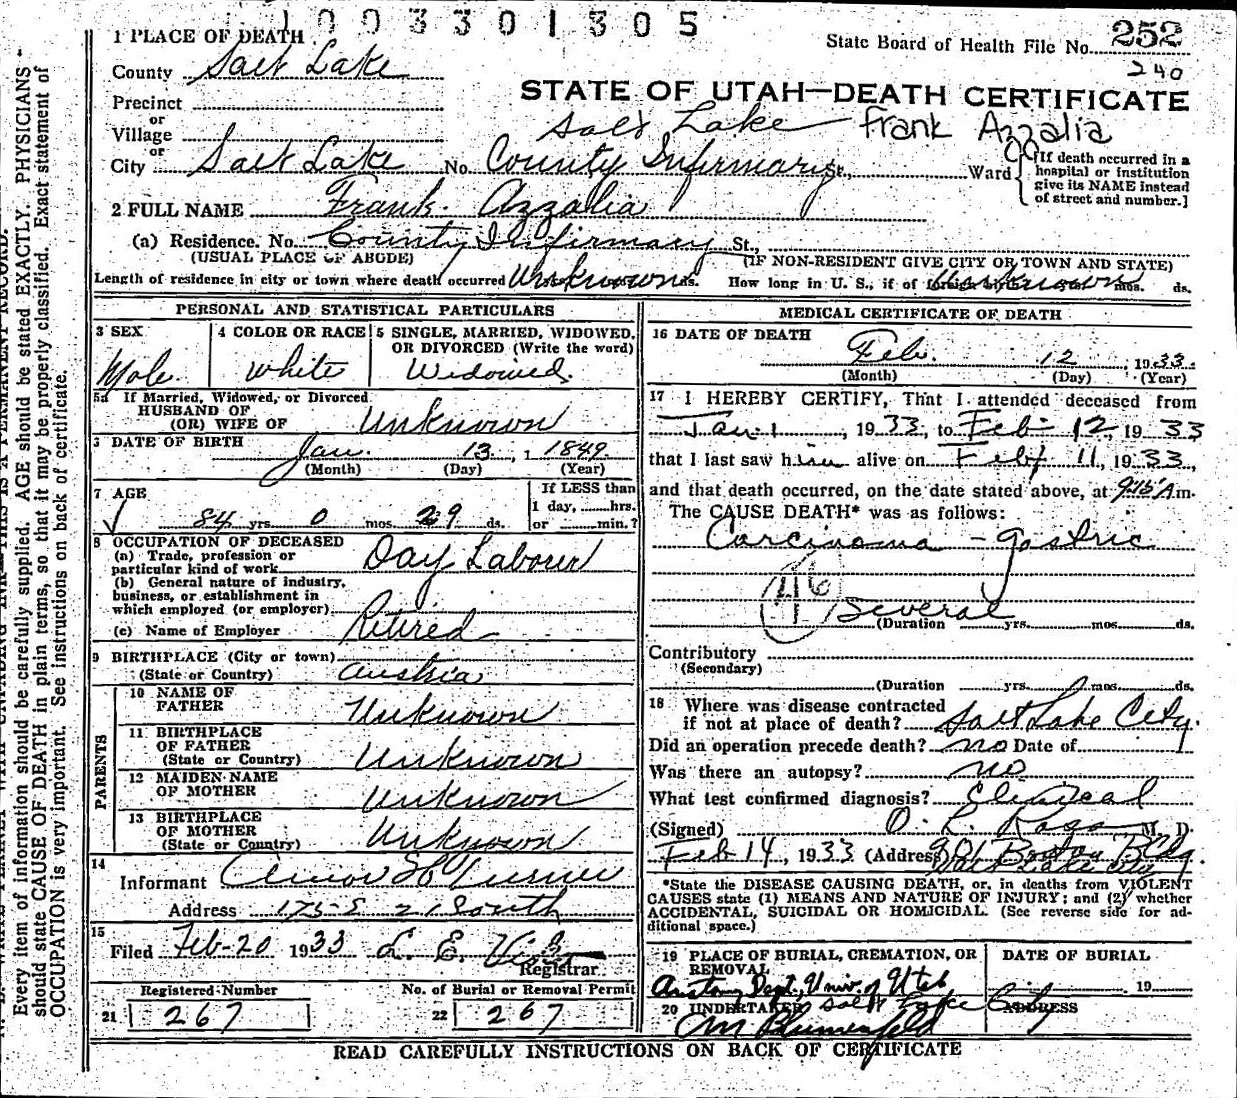 1003301305
252
State Board of Health File No.
240
1 PLACE OF DEATH
County Salt Lake
STATE OF UTAH—DEATH CERTIFICATE
Precinct
or
Village
Salt Lake Frank Azzalia
or
City Salt Lake No. County Infirmary St., Ward
[If death occurred in a
hospital or institution
give its NAME instead
of street and number.]
2 FULL NAME Frank Azzalia
(a) Residence. No. County Infirmary St.,
(USUAL PLACE OF ABODE) (IF NON-RESIDENT GIVE CITY OR TOWN AND STATE)
Length of residence in city or town where death occurred Unknown ds. How long in U. S., if of foreign Unknown mos. ds.
PERSONAL AND STATISTICAL PARTICULARS
3 SEX
Male
4 COLOR OR RACE
White
5 SINGLE, MARRIED, WIDOWED,
OR DIVORCED (Write the word)
Widowed.
5a If Married, Widowed, or Divorced
HUSBAND OF
(OR) WIFE OF Unknown
DATE OF BIRTH
Jan. 13, 1849.
(Month) (Day) (Year)
7 AGE
84 yrs 0 mos. 29 ds.
If LESS than
1 day, hrs.
or min.?
8 OCCUPATION OF DECEASED
(a) Trade, profession or
particular kind of work Day Laborer
(b) General nature of industry,
business, or establishment in
which employed (or employer)
(c) Name of Employer Retired
9 BIRTHPLACE (City or town)
(State or Country) Austria
PARENTS
10 NAME OF
FATHER Unknown
11 BIRTHPLACE
OF FATHER
(State or Country) Unknown
12 MAIDEN NAME
OF MOTHER Unknown
13 BIRTHPLACE
OF MOTHER
(State or Country) Unknown
14
Informant
Address 175 E 21 South
15
Filed Feb-20 1933 L. E.
Registrar
Registered Number
21 267
No. of Burial or Removal Permit
22 267
MEDICAL CERTIFICATE OF DEATH
16 DATE OF DEATH
Feb. 12, 1933.
(Month) (Day) (Year)
17 I HEREBY CERTIFY, That I attended deceased from
Jan. 1, 1933, to Feb 12, 1933
that I last saw him alive on Feb 11, 1933,
and that death occurred, on the date stated above, at 9:15 A m.
The CAUSE DEATH* was as follows:
Carcinoma - gastric
46
Several
(Duration yrs. mos. ds.
Contributory
(Secondary)
(Duration yrs. mos. ds.
18 Where was disease contracted
if not at place of death? Salt Lake City.
Did an operation precede death? no Date of
Was there an autopsy? no
What test confirmed diagnosis? Clinical
(Signed) O. L. M. D.
Feb 14, 1933 (Address) 901 Boston Bldg.
Salt Lake City
*State the DISEASE CAUSING DEATH, or, in deaths from VIOLENT
CAUSES state (1) MEANS AND NATURE OF INJURY; and (2) whether
ACCIDENTAL, SUICIDAL OR HOMICIDAL. (See reverse side for ad-
ditional space.)
19 PLACE OF BURIAL, CREMATION, OR
REMOVAL
Anatomy Dept, Univ. of Utah
DATE OF BURIAL
19
20 UNDERTAKER Salt Lake City ADDRESS
M Blumenfeld
READ CAREFULLY INSTRUCTIONS ON BACK OF CERTIFICATE
Every item of information should be carefully supplied. AGE should be stated EXACTLY. PHYSICIANS
should state CAUSE OF DEATH in plain terms, so that it may be properly classified. Exact statement of
OCCUPATION is very important. See instructions on back of certificate.